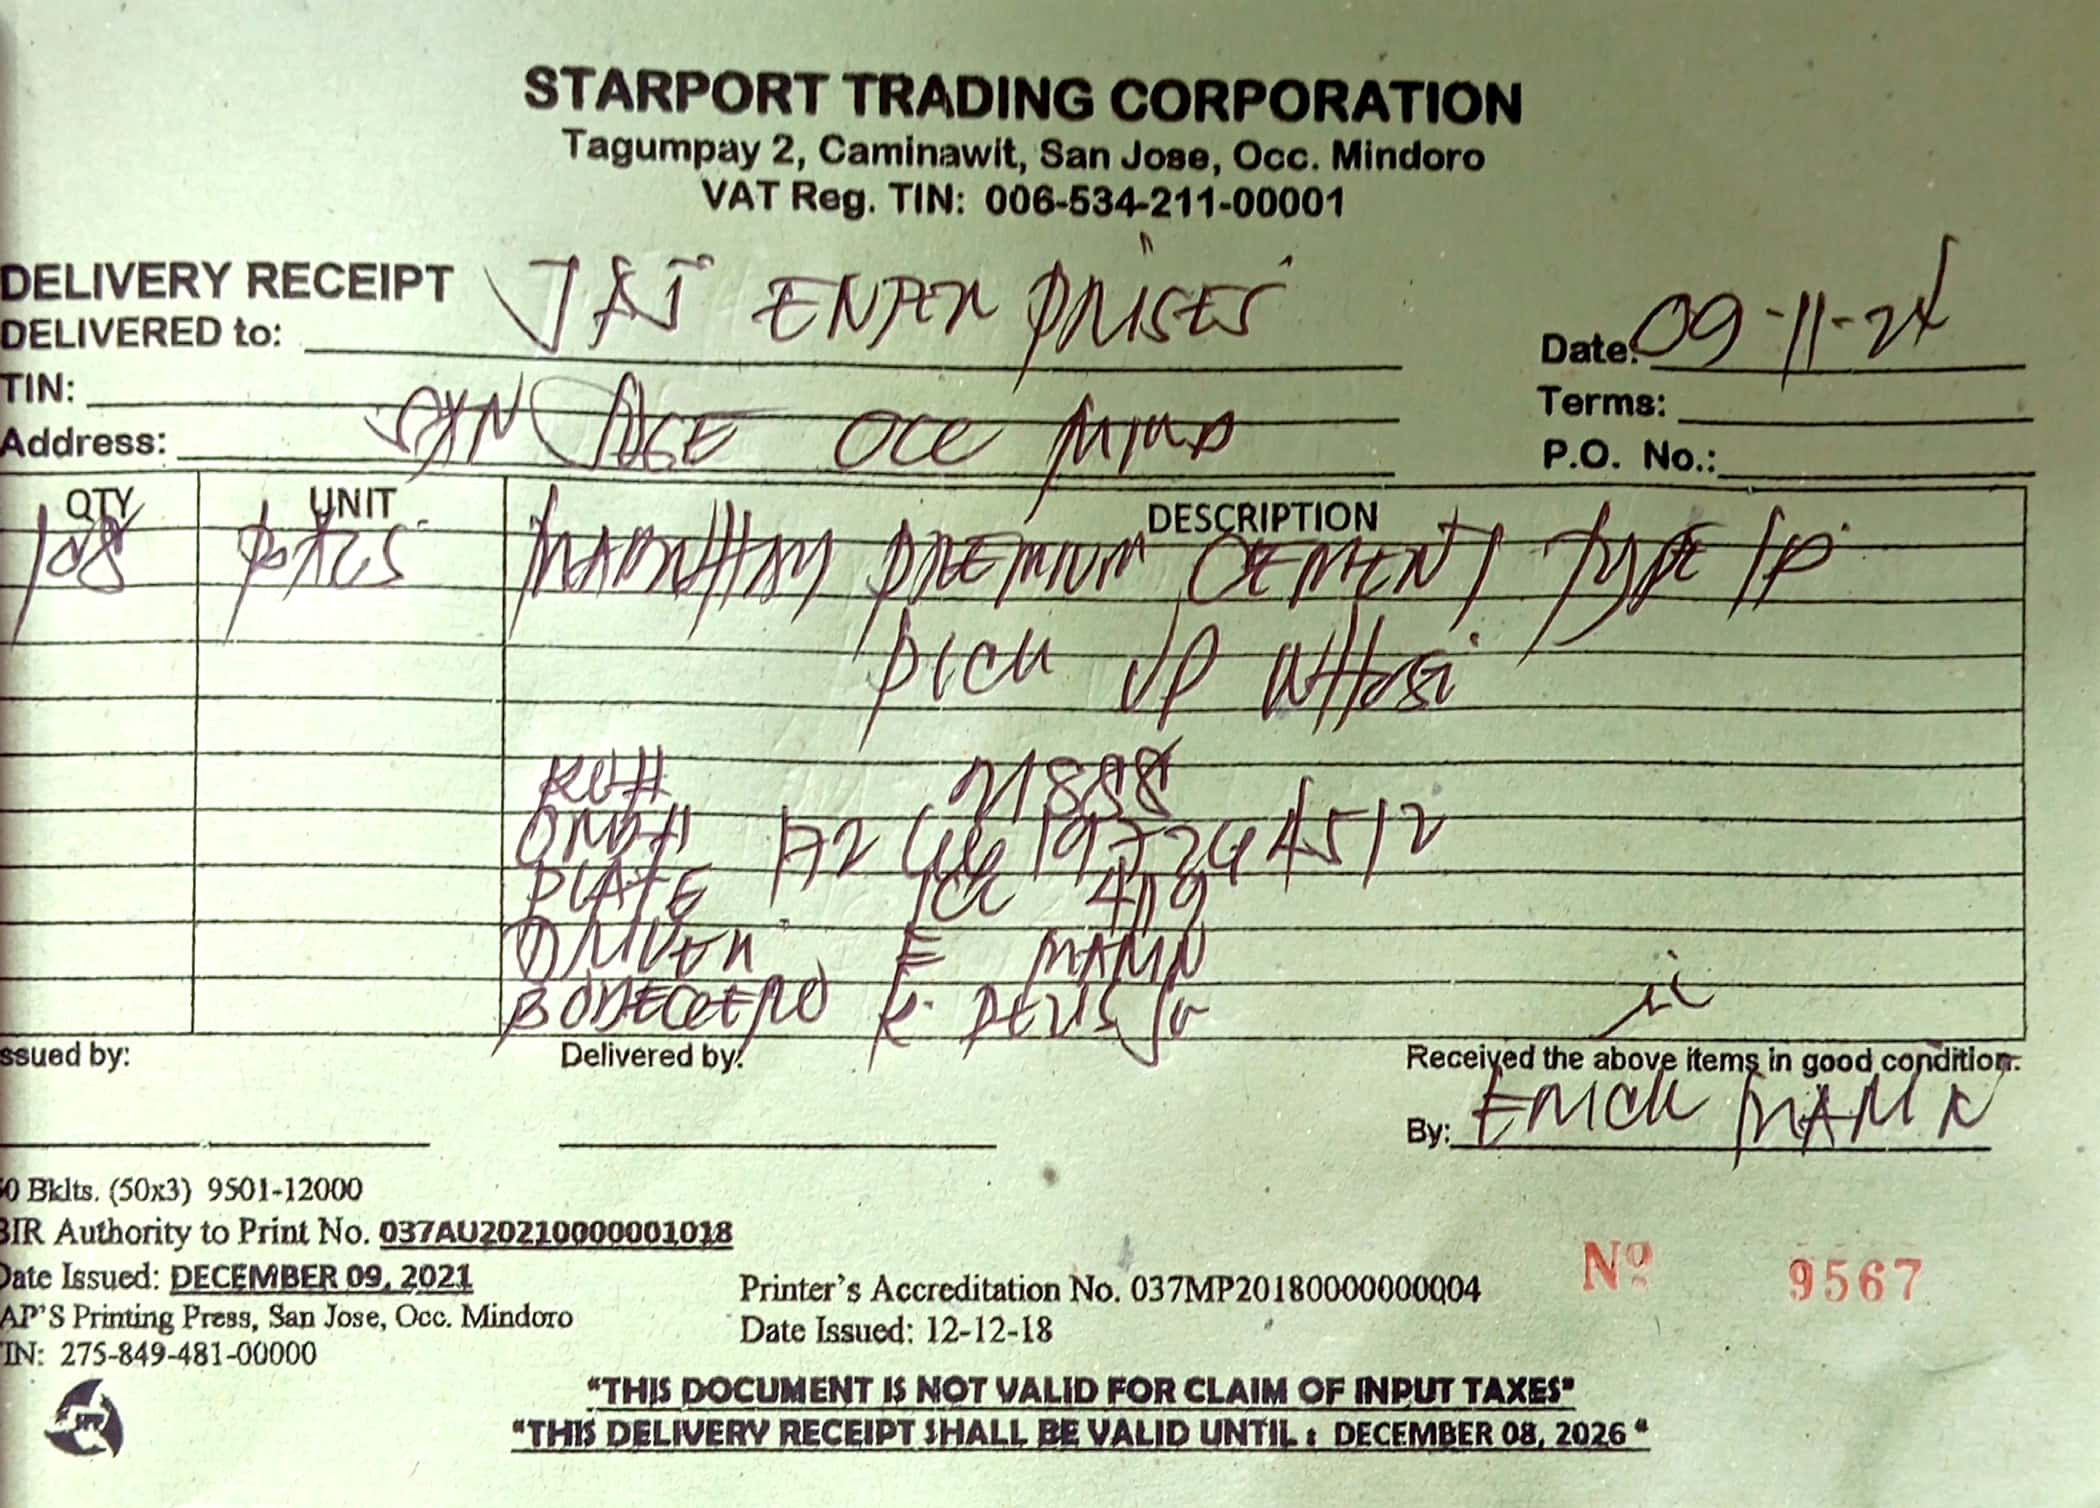 STARPORT TRADING CORPORATION
Tagumpay 2, Caminawit, San Jose, Occ. Mindoro
VAT Reg. TIN: 006-534-211-00001
DELIVERY RECEIPT
DELIVERED to: J&J ENTERPRISES
Date: 09-11-24
TIN:
Terms:
Address: SAN JOSE OCC MIND
P.O. No.:
QTY UNIT DESCRIPTION
108 PAGS MABUHAY PREMIUM CEMENT TYPE 1P
PICK UP WHSE
21888
PLATE 419
DRIVER E MARIN
BODEGERO R. Jr
ssued by:
Delivered by:
Received the above items in good condition.
By: ERICK MARIN
0 Bklts. (50x3) 9501-12000
BIR Authority to Print No. 037AU20210000001018
Date Issued: DECEMBER 09, 2021
AP'S Printing Press, San Jose, Occ. Mindoro
TIN: 275-849-481-00000
Printer's Accreditation No. 037MP20180000000004
Date Issued: 12-12-18
Nº 9567
"THIS DOCUMENT IS NOT VALID FOR CLAIM OF INPUT TAXES"
"THIS DELIVERY RECEIPT SHALL BE VALID UNTIL : DECEMBER 08, 2026"